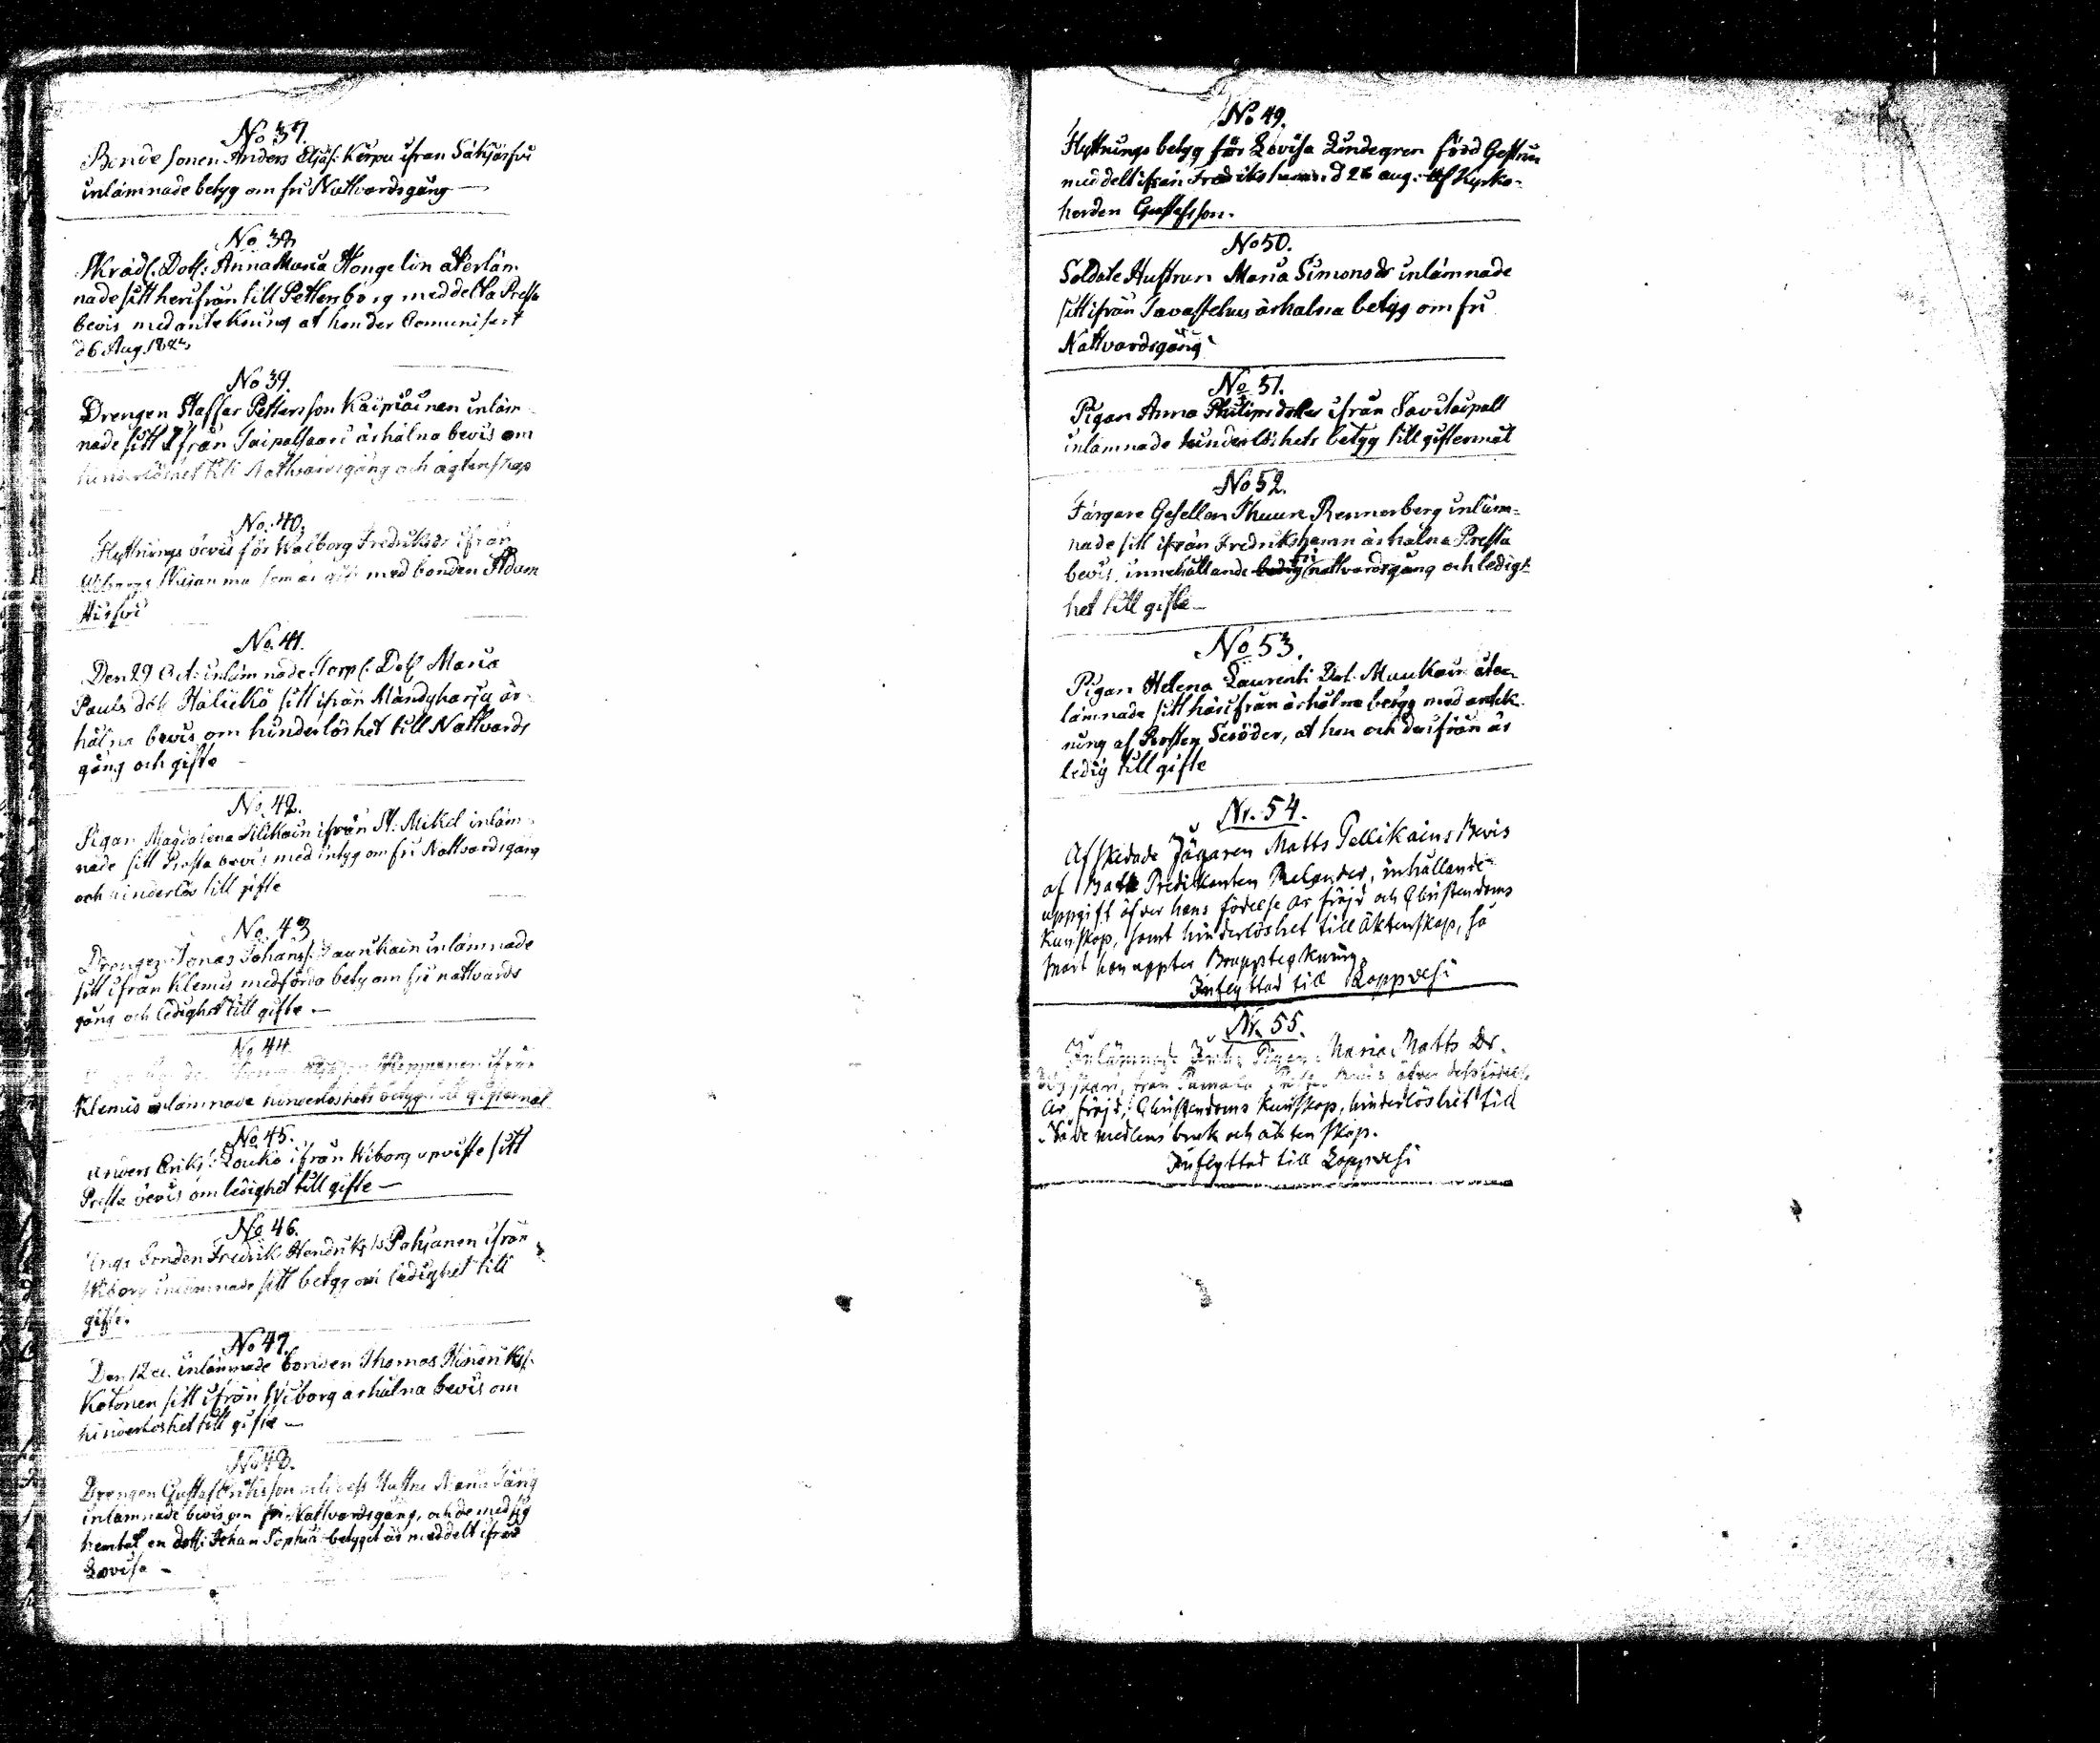 No 37.
Bonde sonen Anders Eljas: Kerpu ifrån Säkjärfvi
inlämnade betyg om fri Nattvardsgång —
No 38
Skräd. Dott: Anna Maria Hongelin återläm
nade sitt herifrån till Pettersborg meddelta Presta
bevis med antekning at hon der Comunisert
d 6 Aug.
No 39.
Drengen Staffar Pettersson Kaipiainen inläm
nade sitt ifrån Taipalsaari ärhålna bevis om
hinderlöshet till Nattvardsgång och ägtenskap
No. 40.
Flyttnings bevis för Walborg Fredriksdr ifrån
Wiborgs som är gift med bonden Adam
No. 41.
Den 29 Oct: inlämnade Torp: Dott Maria
Pauls dott sitt ifrån Mändyharju är
hålna bevis om hinderlöshet till Nattvards
gång och gifte
No. 42.
Pigan Magdalena Silikain ifrån St: Mikel inläm
nade sitt Presta bevis med intyg om fri Nattvardsgång
och hinderlös till gifte
No. 43
Drengen Jonas Johans: inlämnade
sitt ifrån Klemis medförda betyg om fri nattvards
gång och ledighet till gifte. —
No 44
ifrån
Klemis inlämnade hinderlöshets betyg till giftermål
No 45.
Anders Eriks: Louko ifrån Wiborg upviste sitt
Presta bevis om ledighet till gifte —
No 46.
Fredrik Hendriks: Pahjanen ifrån
Wiborg inlämnade sitt betyg om ledighet till
gifte.
No 47.
Den 12 inlämnade bonden Thomas Hindriks:
Ketonen sitt ifrån Wiborg ärhålna bevis om
hinderlöshet till gifte —
No 48.
Drengen Gustaf Eriksson och dess Hustru Maria
inlämnade bevis om fri Nattvardsgång, och de med sig
en dott: Johan Sophia betyget är meddelt ifrån
Lovisa —
No 49.
Flyttnings betyg för Lovisa Lindegren född
meddelt ifrån Fredrikshamn d 26 aug: af Kyrko-
herden Gustafsson.
No 50.
Soldate Hustrun Maria Simonsdr inlämnade
sitt ifrån Tavastehus ärhalna betyg om fri
Nattvardsgång
No 51.
Pigan Anna Philipsdotter ifrån Savitaipall
inlämnade hinderlöshets betyg till giftermål
No 52.
Färgare Gesellen Thuure Rennerberg inläm=
nade sitt ifrån Fredrikshamn ärhålna Presta
bevis, innehållande fri nattvardsgång och ledig=
het till gifte —
No 53.
Pigan Helena Laurenti Dot. Muukain åter
lämnade sitt härifrån ärhålna betyg med antek
ning af Prosten Seröder, at hon och derifrån är
ledig till gifte
Nr. 54.
Afskedade Jägaren Matts Pellikains Bevis
af Batt: Predikanten Relander, inhållande
uppgift öfver hans födelse år fräjd och Christendoms
Kunskap, samt hinderlöshet till äktenskap, så
snart han uppter
Inflyttad till Lappvesi
Nr. 55.
Inlämnade Pigan Maria Matts Dr.
från
år, fräjd, Christendoms Kunskap, hinderlöshet till
Nåde medlens bruk och äktenskap.
Inflyttad till Lappvesi